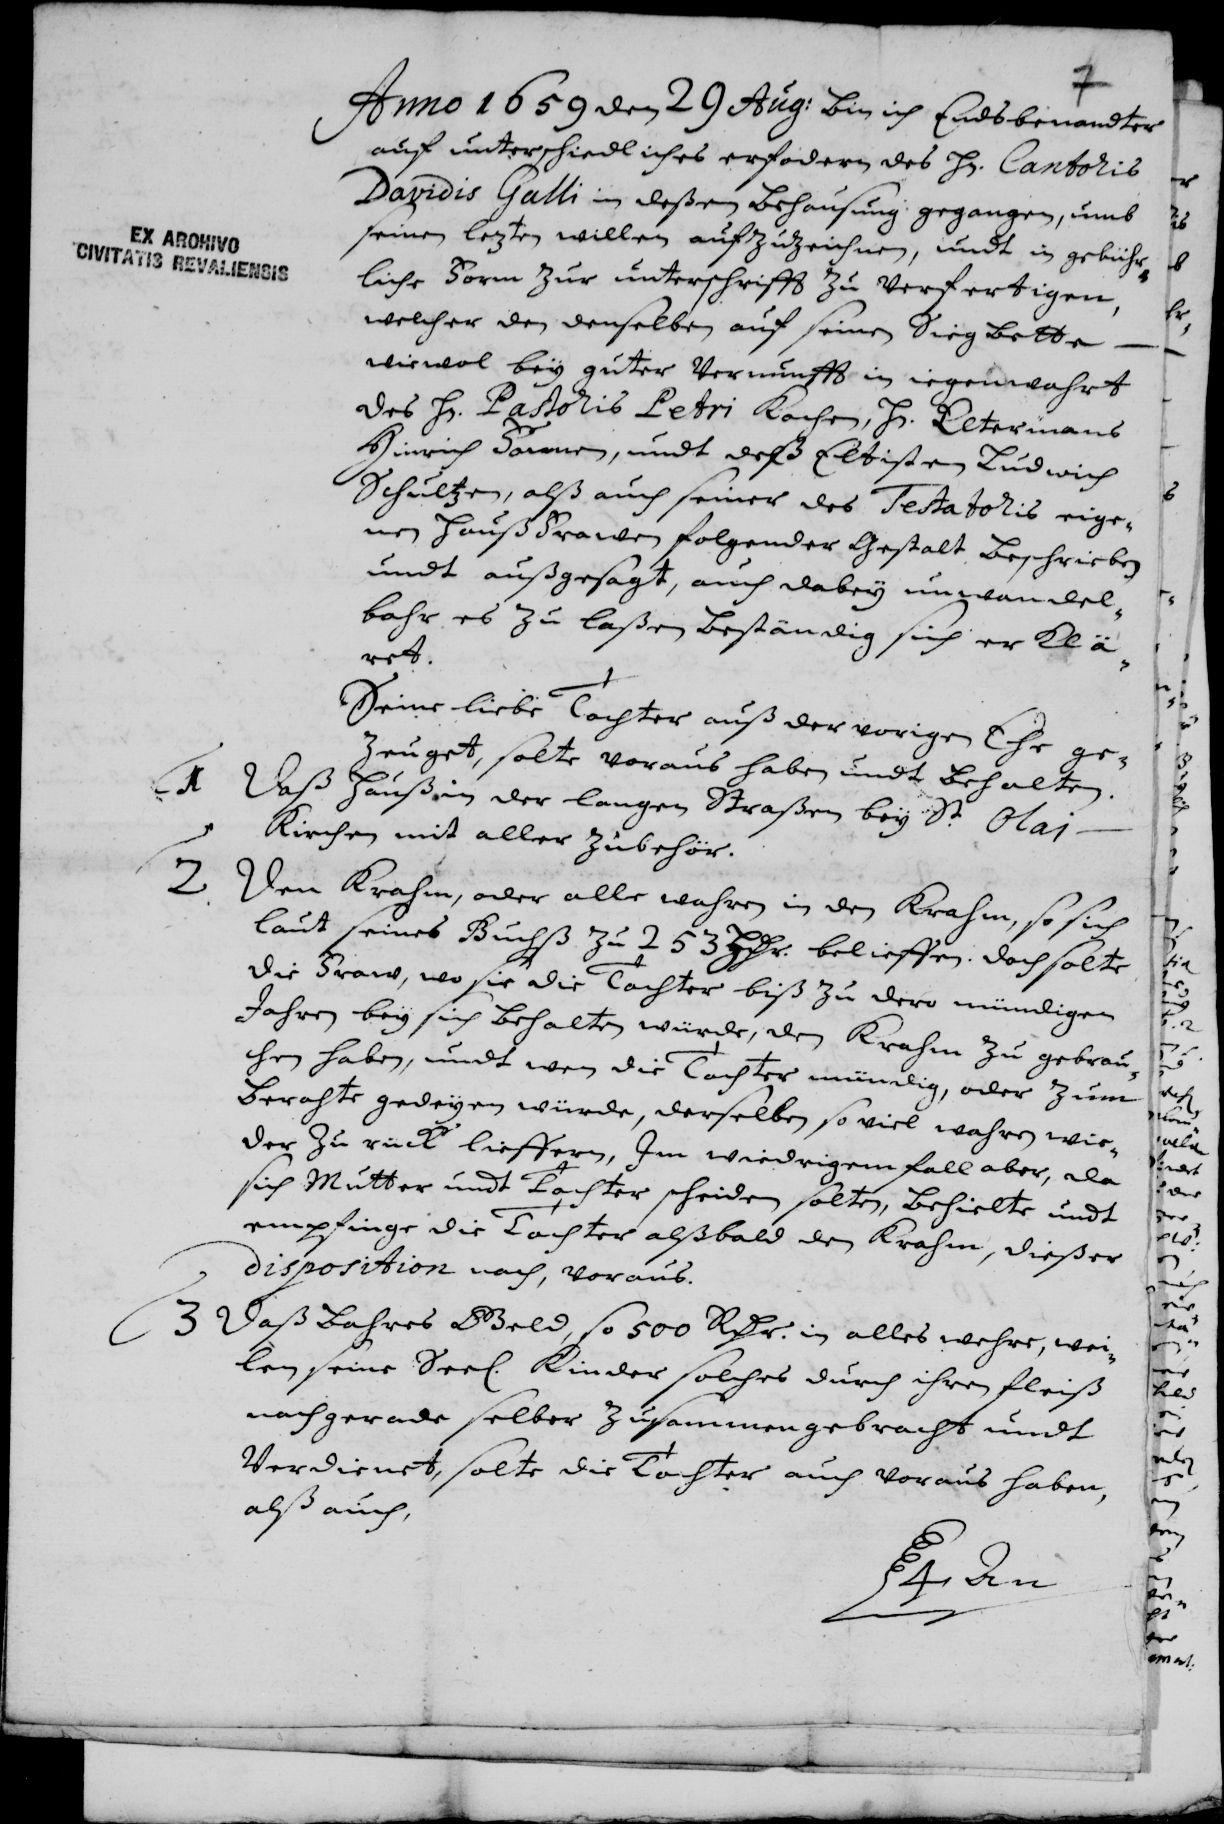 7
Anno 1659 den 29 Aug: bin ich Endsbenandter
auf unterschiedliches erfodern des Hn. Cantoris
Davidis Galli in deßen behausung gegangen, umb
seinen lezten willen aufzuzeichnen, undt in gebühr„
liche Form zur unterschrifft zu verfertigen,
welcher den denselben auf seinen Siegbette —
wiewol bey guter Vernunfft in iegenwahrt
des Hn. Pastoris Petri Kochen, Hn. Eltermans
Hinrich Fonnen, undt deß Eltisten Ludwich
Schultzen, alß auch seiner des Testatoris eige„
nen Hauß Frawen folgender Gestalt beschrieben
undt außgesagt, auch dabey unwandel„
bahr es zu laßen beständig sich erklä„
ret.
Seine liebe Tochter auß der vorigen Ehe ge„
zeuget, solte voraus haben undt behalten.
1 Daß Hauß in der langen Straßen bey St. Olai —
Kirchen mit aller zubehör.
2. Den Krahm, oder alle wahren in den Krahm, so sich
laut seines Buchß zu 253 Rthr. belieffen. doch solte
die Fraw, wo sie die Tochter biß zu dero mündigen
Jahren bey sich behalten würde, den Krahm zu gebrau„
chen haben, undt wen die Tochter mündig, oder zum
berahte gedeyen würde, derselben so viel wahren wie„
der zu rück lieffern, Im wiedrigem fall aber, da
sich Mutter undt Tochter scheiden solten, behielte undt
empfinge die Tochter alßbald den Krahm, dießer
disposition nach, voraus.
3 Daß bahres Geld, so 500 Rthr. in alles wehre, wei„
len seine Seel. Kinder solches durch ihren fleiß
nachgerade selber zusammengebracht undt
verdienet, solte die Tochter auch voraus haben,
alß auch,
4. An
EX ARCHIVO
CIVITATIS REVALIENSIS